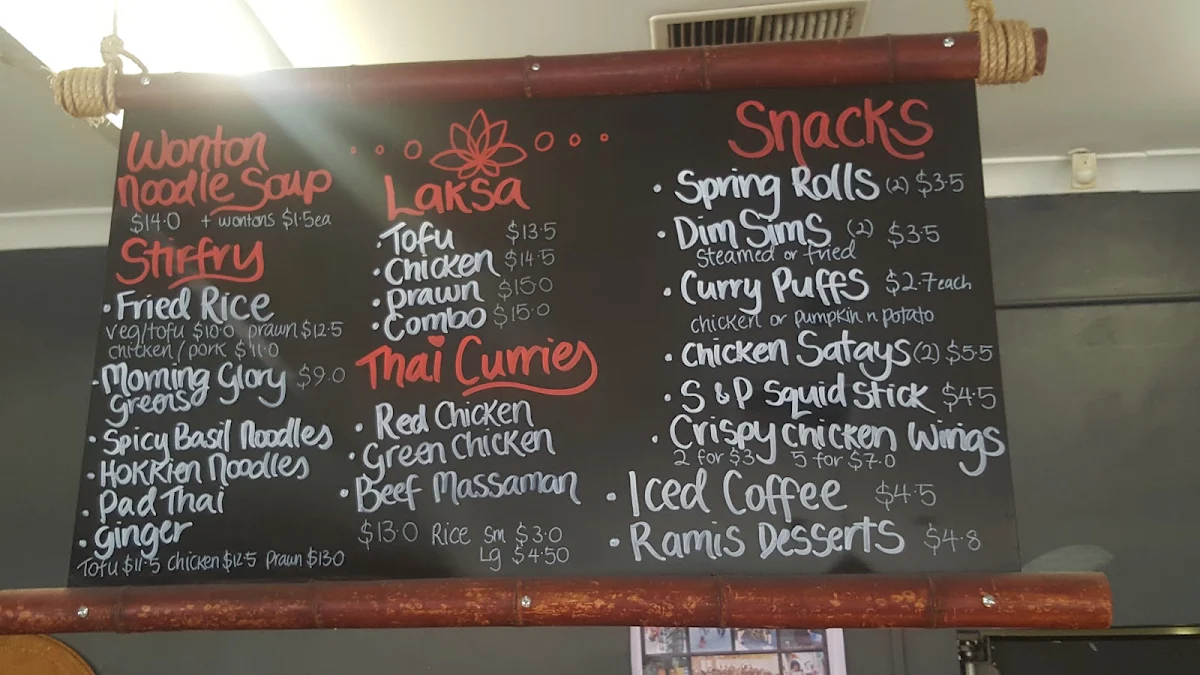 Wonton
Noodle Soup
$14.0 + wontons $1.5ea
Stirfry
• Fried Rice
veg/tofu $10.0 prawn $12.5
chicken/pork $11.0
• Morning Glory $9.0
greens
• Spicy Basil Noodles
• Hokkien Noodles
• Pad Thai
• ginger
Tofu $11.5 Chicken $12.5 Prawn $13.0
Laksa
• Tofu $13.5
• Chicken $14.5
• Prawn $15.0
• Combo $15.0
Thai Curries
• Red Chicken
• Green Chicken
• Beef Massaman
$13.0 Rice sm $3.0
Lg $4.50
Snacks
• Spring Rolls (2) $3.5
• Dim Sims (2) $3.5
steamed or fried
• Curry Puffs $2.7each
chicken or pumpkin n potato
• Chicken Satays (2) $5.5
• S & P Squid Stick $4.5
• Crispy Chicken Wings
2 for $3 5 for $7.0
• Iced Coffee $4.5
• Ramis Desserts $4.8